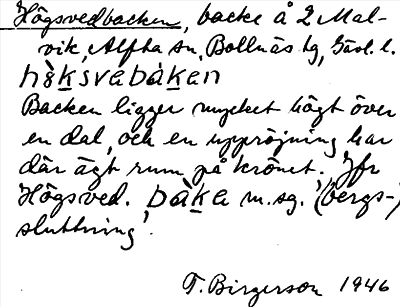 Högsvedbacken, backe å 2 Mal-
vik, Alfta sn, Bollnäs tg, Gävl. l.
hö̀ksvebàken
Backen ligger mycket högt över
en dal, och en uppröjning har
där ägt rum på krönet. Jfr
Högsved. bàke m.sg. (bergs-)
sluttning.
T. Birgerson 1946